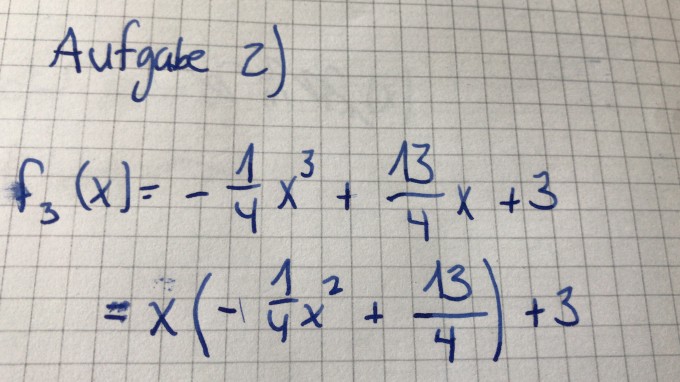 Aufgabe 2)
f₃(x) = - 1/4 x³ + 13/4 x + 3
= x(- 1/4 x² + 13/4) + 3